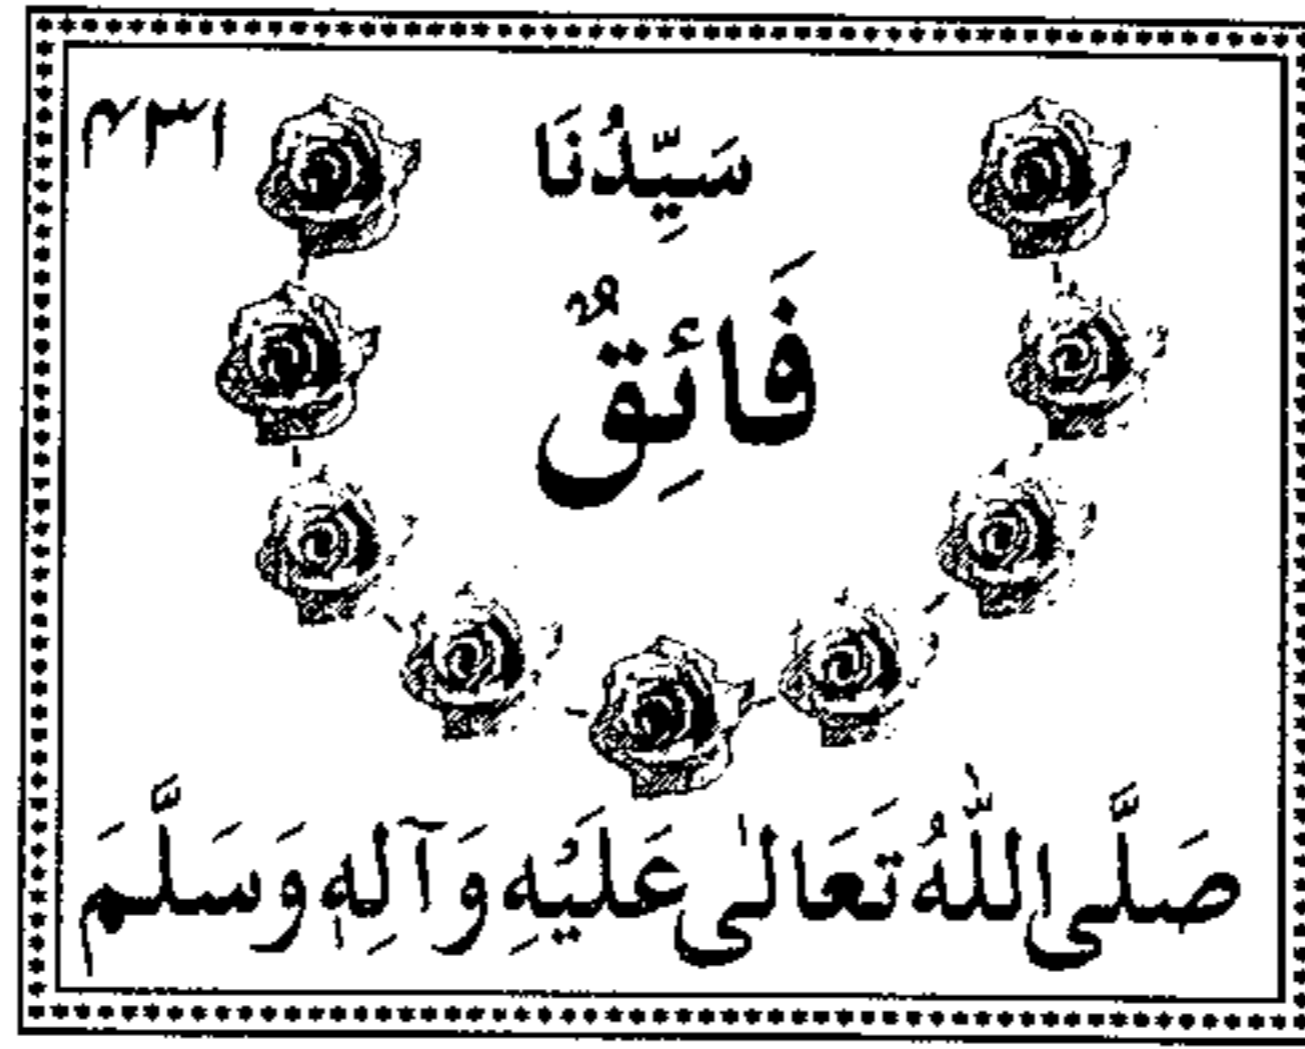 ۴۳۱
سَيِّدُنَا
فَائِقٌ
صَلَّى اللّٰهُ تَعَالٰى عَلَيْهِ وَآلِهٖ وَسَلَّمَ